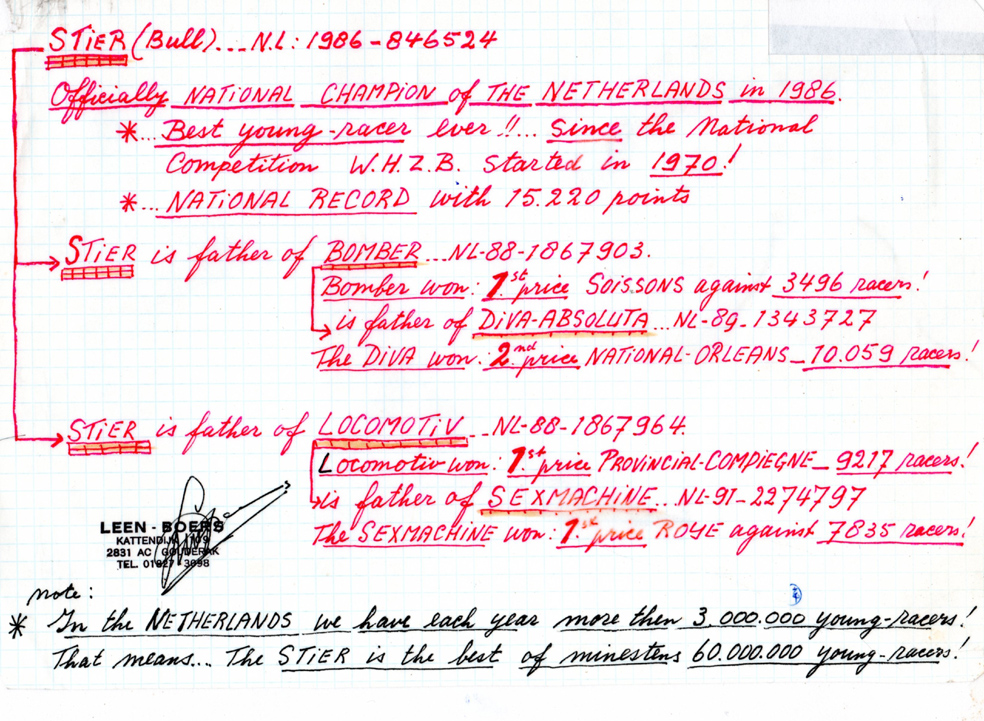 STiER (Bull)... N.L: 1986-846524
Officially NATiONAL CHAMPiON of THE NETHERLANDS in 1986.
*... Best young-racer ever!!... Since the National
Competition W.H.Z.B. Started in 1970!
*... NATiONAL RECORD with 15.220 points
STiER is father of BOMBER...NL-88-1867903.
Bomber won: 1st price SOiSSONS against 3496 racers!
is father of DiVA-ABSOLUTA...NL-89-1343727
The DiVA won: 2nd price NATIONAL-ORLEANS_10.059 racers!
STiER is father of LOCOMOTiV...NL-88-1867964.
Locomotiv won: 1st price PROViNCiAL-COMPiEGNE_9217 racers!
is father of SEXMACHiNE...NL-91-2274797
The SEXMACHiNE won: 1st price ROYE against 7835 racers!
LEEN - BOERS
KATTENDIJK 109
2831 AC GOUDERAK
TEL. 01827-3098
note:
* In the NETHERLANDS we have each year more then 3.000.000 young-racers!
That means... The STiER is the best of minestens 60.000.000 young-racers!